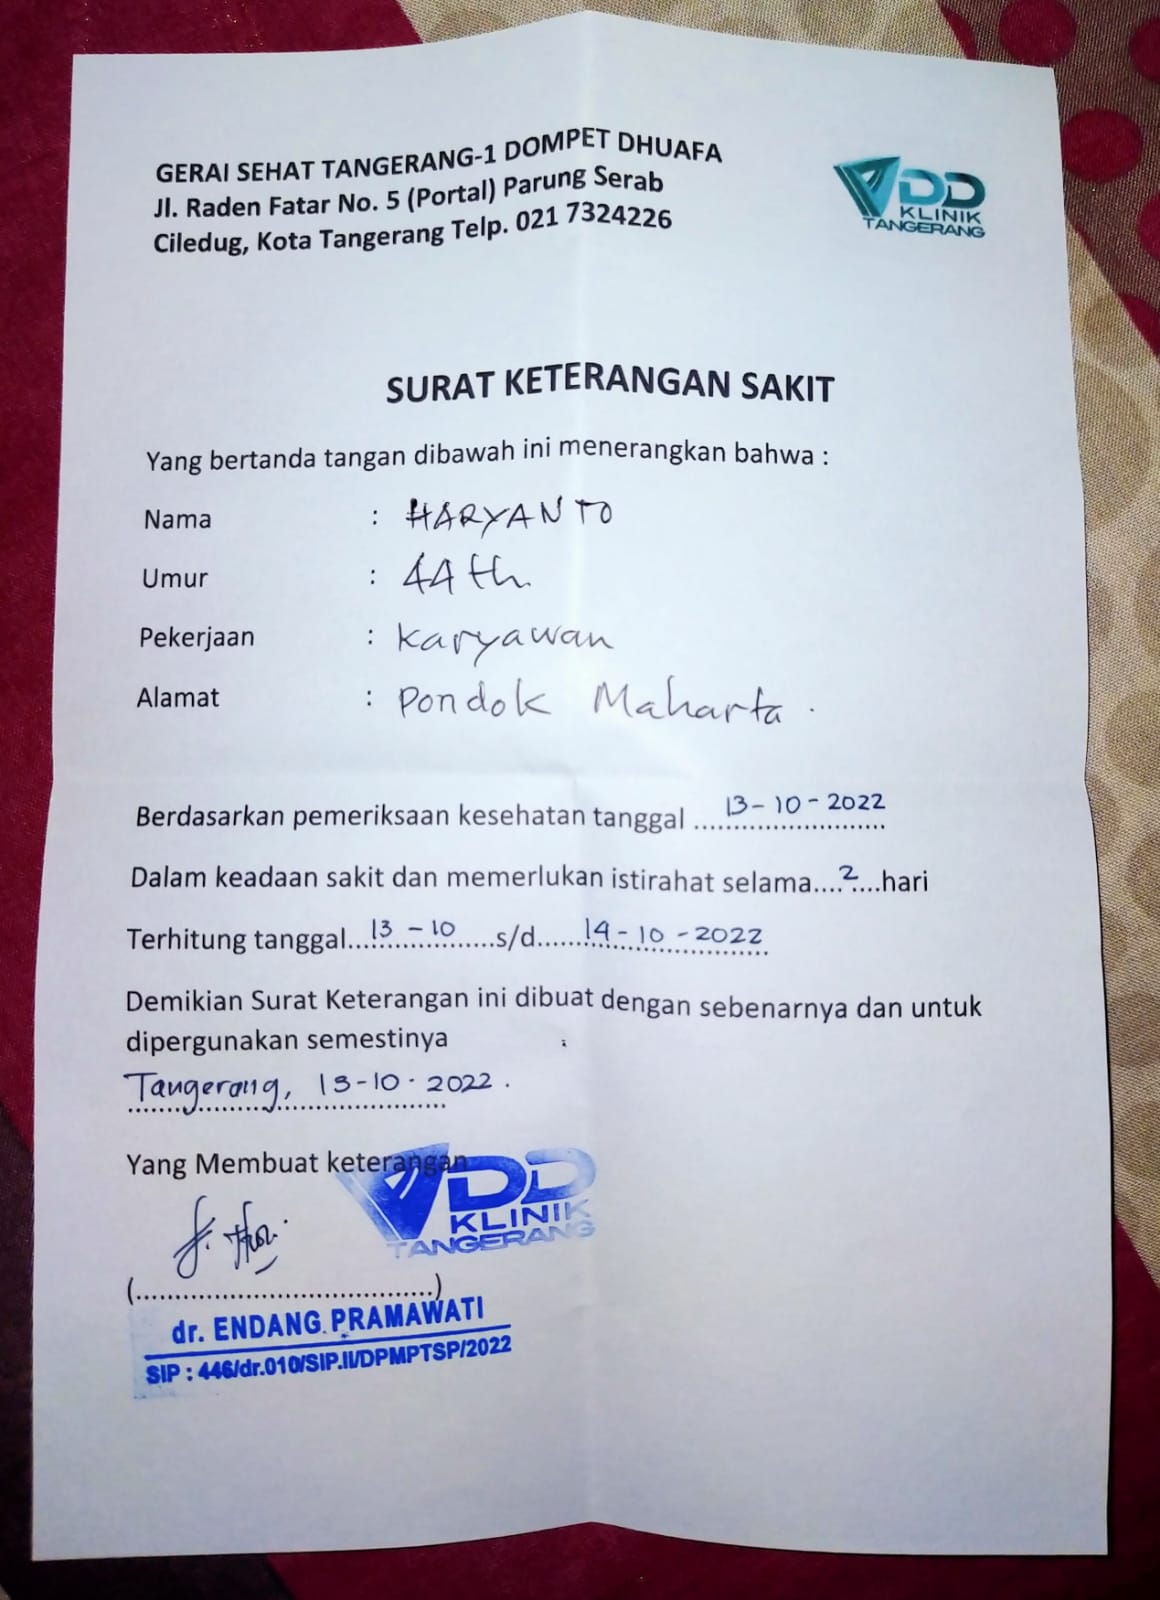 GERAI SEHAT TANGERANG-1 DOMPET DHUAFA
Jl. Raden Fatar No. 5 (Portal) Parung Serab
Ciledug, Kota Tangerang Telp. 021 7324226
DD
KLINIK
TANGERANG
SURAT KETERANGAN SAKIT
Yang bertanda tangan dibawah ini menerangkan bahwa :
Nama : HARYANTO
Umur : 44 th.
Pekerjaan : Karyawan
Alamat : Pondok Maharta .
Berdasarkan pemeriksaan kesehatan tanggal 13-10-2022
Dalam keadaan sakit dan memerlukan istirahat selama....2....hari
Terhitung tanggal...13-10...s/d...14-10-2022
Demikian Surat Keterangan ini dibuat dengan sebenarnya dan untuk
dipergunakan semestinya
Tangerang, 13-10-2022.
Yang Membuat keterangan
DD
KLINIK
TANGERANG
(......................................)
dr. ENDANG PRAMAWATI
SIP : 446/dr.010/SIP.II/DPMPTSP/2022